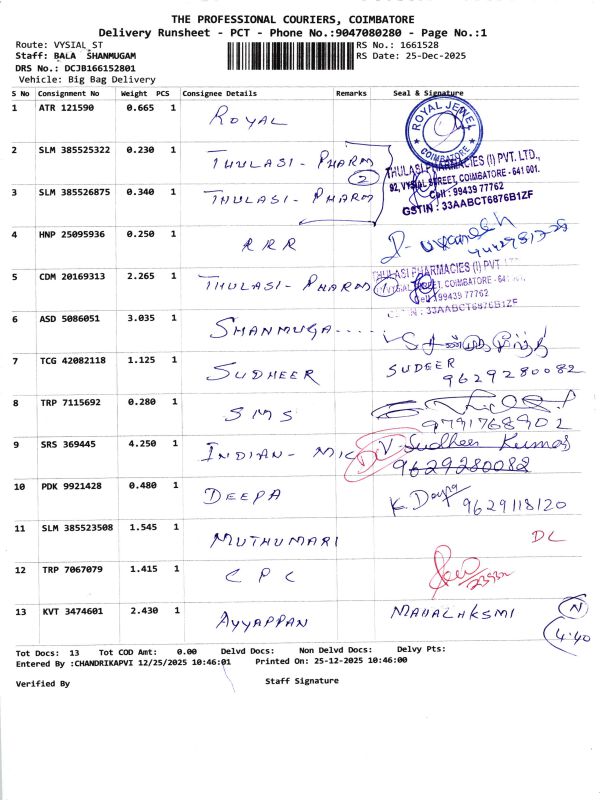 THE PROFESSIONAL COURIERS, COIMBATORE
Delivery Runsheet - PCT - Phone No.:9047080280 - Page No.:1
Route: VYSIAL_ST RS No.: 1661528
Staff: BALA SHANMUGAM RS Date: 25-Dec-2025
DRS No.: DCJB166152801
Vehicle: Big Bag Delivery
S No Consignment No Weight PCS Consignee Details Remarks Seal & Signature
1 ATR 121590 0.665 1 ROYAL ROYAL JEWEL COIMBATORE
2 SLM 385525322 0.230 1 THULASI - PHARM 2
THULASI PHARMACIES (I) PVT. LTD.,
92, VYSIAL STREET, COIMBATORE - 641 001.
Cell : 99439 77762
GSTIN : 33AABCT6876B1ZF
3 SLM 385526875 0.340 1 THULASI - PHARM
4 HNP 25095936 0.250 1 RRR
5 CDM 20169313 2.265 1 THULASI - PHARM
THULASI PHARMACIES (I) PVT. LTD.
VYSIAL STREET, COIMBATORE - 641
Cell : 99439 77762
GSTIN : 33AABCT6876B1ZF
6 ASD 5086051 3.035 1 SHANMUGA.....
7 TCG 42082118 1.125 1 SUDHEER SUDEER
9629280082
8 TRP 7115692 0.280 1 SMS
9791768902
9 SRS 369445 4.250 1 INDIAN - MIC DL V-Sudheer Kumar
9629280082
10 PDK 9921428 0.480 1 DEEPA K. Deepa 9629118120
11 SLM 385523508 1.545 1 MUTHUMARI DL
12 TRP 7067079 1.415 1 CPC
13 KVT 3474601 2.430 1 AYYAPPAN MAHALAKSMI N
4:40
Tot Docs: 13 Tot COD Amt: 0.00 Delvd Docs: Non Delvd Docs: Delvy Pts:
Entered By :CHANDRIKAPVI 12/25/2025 10:46:01 Printed On: 25-12-2025 10:46:00
Verified By Staff Signature